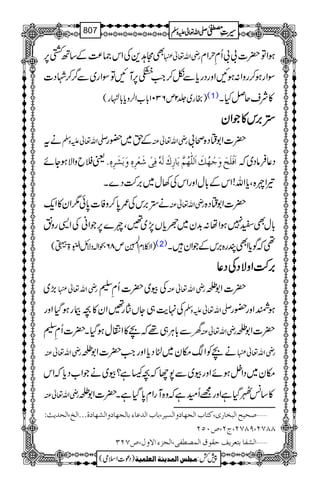 سیرتِ مصطفیٰ صلی اللہ تعالیٰ علیہ وسلم 807
ہوا تو حضرت بی بی اُم حرام رضی اللہ تعالیٰ عنہا بھی مجاہدین کی اس جماعت کے ساتھ کشتی پر
سوار ہو کر روانہ ہوئیں اور دریا سے نکل کر خشکی پر آئیں تو سواری سے گر کر شہادت
کا شرف حاصل کیا۔ (1) (بخاری جلد۲ ص۱۰۳۶ باب الرویا بالنہار)
ستر برس کا جوان
حضرت ابوقتادہ صحابی رضی اللہ تعالیٰ عنہ کے حق میں حضور صلی اللہ تعالیٰ علیہ وسلم نے یہ
دعا فرما دی کہ اَفْلَحَ وَجْهُكَ اَللّٰهُمَّ بَارِكْ لَهٗ فِيْ شَعْرِهٖ وَبَشَرِهٖ یعنی فلاح والا ہو جائے
تیرا چہرہ، یا اللہ! اس کے بال اور اس کی کھال میں برکت دے۔
حضرت ابوقتادہ رضی اللہ تعالیٰ عنہ نے ستر برس کی عمر پا کر وفات پائی مگر ان کا ایک
بال بھی سفید نہیں ہوا تھا نہ بدن میں جھریاں پڑی تھیں، چہرے پر جوانی کی ایسی رونق
تھی کہ گویا ابھی پندرہ برس کے جوان ہیں۔ (2) (الکلام المبین ص۶۸ بحوالہ دلائل النبوۃ بیہقی)
برکت اولاد کی دعا
حضرت ابو طلحہ رضی اللہ تعالیٰ عنہ کی بیوی حضرت اُم سلیم رضی اللہ تعالیٰ عنہا بڑی
ہوشمند اور حضور صلی اللہ تعالیٰ علیہ وسلم کی نہایت ہی جاں نثار تھیں ان کا بچہ بیمار ہو گیا اور
حضرت ابو طلحہ رضی اللہ تعالیٰ عنہ گھر سے باہر ہی تھے کہ بچے کا انتقال ہو گیا۔ حضرت اُم سلیم
رضی اللہ تعالیٰ عنہا نے بچے کو الگ مکان میں لٹا دیا اور جب حضرت ابو طلحہ رضی اللہ تعالیٰ عنہ
مکان میں داخل ہوئے اور بیوی سے پوچھا کہ بچہ کیسا ہے؟ بیوی نے جواب دیا کہ اس
کا سانس ٹھہر گیا ہے اور مجھے امید ہے کہ وہ آرام پا گیا ہے۔ حضرت ابو طلحہ رضی اللہ تعالیٰ عنہ
......صحیح البخاری، کتاب الجہاد والسیر، باب الدعاء بالجہاد والشہادة...الخ، الحدیث:
۲۷۸۸،۲۷۸۹، ج۲، ص۲۵۰
......الشفا بتعریف حقوق المصطفیٰ، الجزء الاول، ص۳۲۷
پیش کش: مجلس المدینة العلمیة (دعوتِ اسلامی)